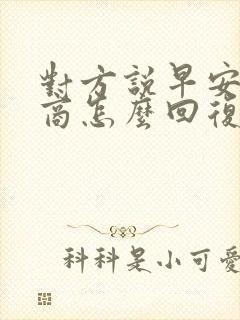 對方說早安
商怎麼回復
科科是小可愛